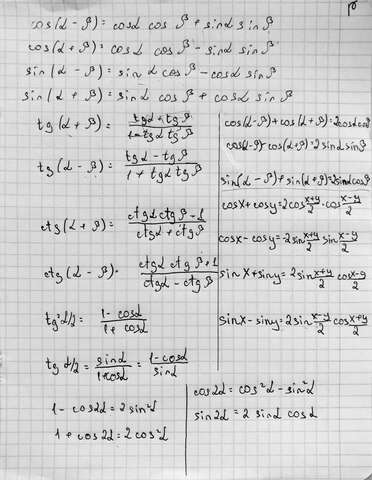 cos(α - β) = cosα cos β + sinα sin β
cos(α + β) = cos α cos β - sinα sin β
sin(α - β) = sin α cos β - cos α sin β
sin(α + β) = sinα cos β + cos α sin β
tg(α + β) = (tgα + tgβ)/(1 - tgα tgβ)
tg(α - β) = (tgα - tgβ)/(1 + tgα tgβ)
ctg(α + β) = (ctgα ctgβ - 1)/(ctgα + ctgβ)
ctg(α - β) = (ctgα ctgβ + 1)/(ctgα - ctgβ)
tg²α/2 = (1 - cosα)/(1 + cosα)
tg α/2 = sinα/(1+cosα) = (1 - cosα)/sinα
1 - cos2α = 2 sin²α
1 + cos2α = 2cos²α
cos(α-β) + cos(α+β) = 2cosα cosβ
cos(α-β) - cos(α+β) = 2 sinα sinβ
sin(α-β) + sin(α+β) = 2sinα cosβ
cosx + cosy = 2cos (x+y)/2 · cos (x-y)/2
cosx - cosy = -2sin (x+y)/2 sin (x-y)/2
sinx + siny = 2sin (x+y)/2 cos (x-y)/2
sinx - siny = 2sin (x-y)/2 cos (x+y)/2
cos2α = cos²α - sin²α
sin2α = 2 sinα cosα